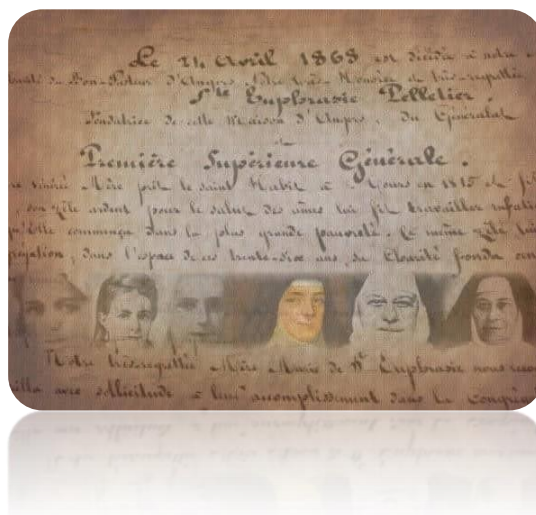 Le 24 Avril 1868 est décédée à notre
du Bon-Pasteur d'Angers, Notre très Honorée et très-regrettée
Ste Euphrasie Pelletier.
Fondatrice de cette Maison d'Angers, du Généralat
et
Première Supérieure Générale.
vénérée Mère prit le saint Habit à Tours en 1815
son zèle ardent pour le salut des âmes lui fit travailler
commença dans la plus grande pauvreté. Ce même zèle lui
dans l'espace de ces trente-trois ans de Charité fonda
Notre très-regrettée Mère Marie de Ste Euphrasie nous
avec sollicitude à leur accomplissement dans la